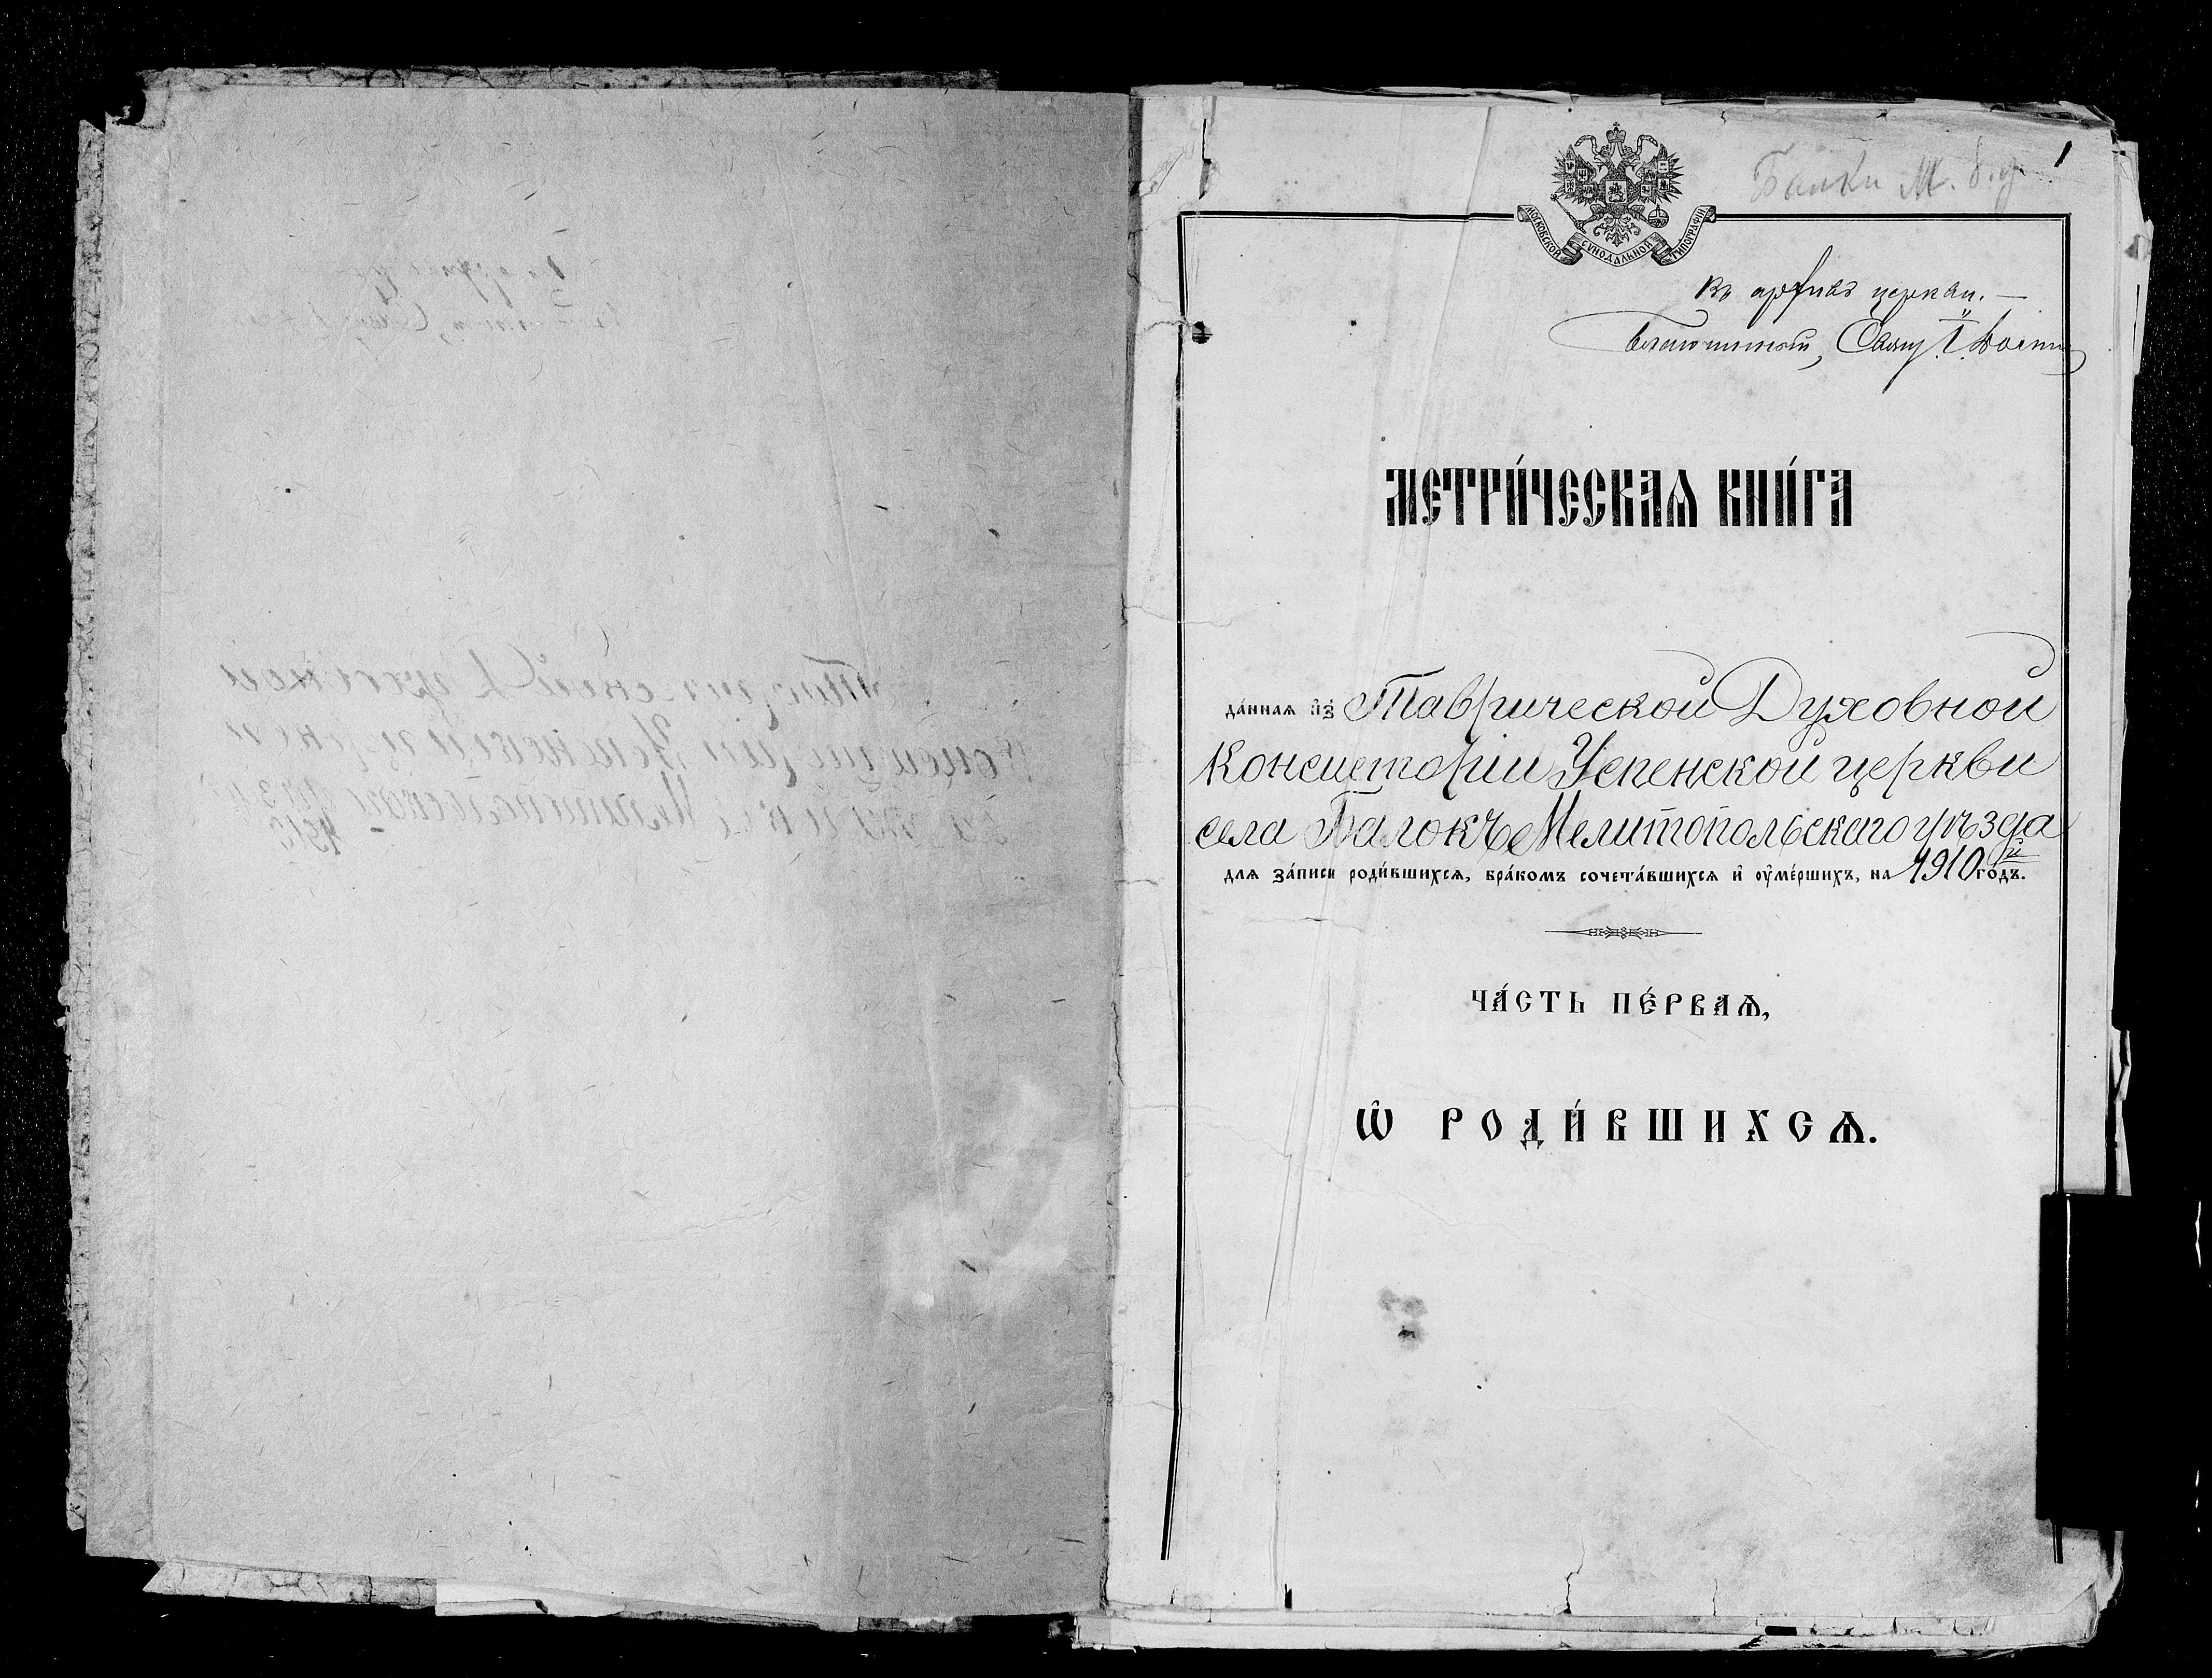 Балки М. у. 1
МОСКОВСКОЙ СѴНОДАЛЬНОЙ ТИПОГРАФІИ
Въ архивъ церкви. —
Благочинный, Свящ. І.
МЕТРИ́ЧЕСКАѦ КНИ́ГА
да́ннаѧ и҆з̾ Таврической Духовной
Консисторіи Успенской церкви
села Балокъ Мелитопольскаго уѣзда
для за́писи роди́вшихсѧ, бра́комъ сочета́вшихсѧ и҆ ᲂу҆ме́ршихъ, на 1910й го́дъ.
ЧА́СТЬ ПЕ́РВАѦ,
Ѡ҆ РОДИ́ВШИХСѦ.